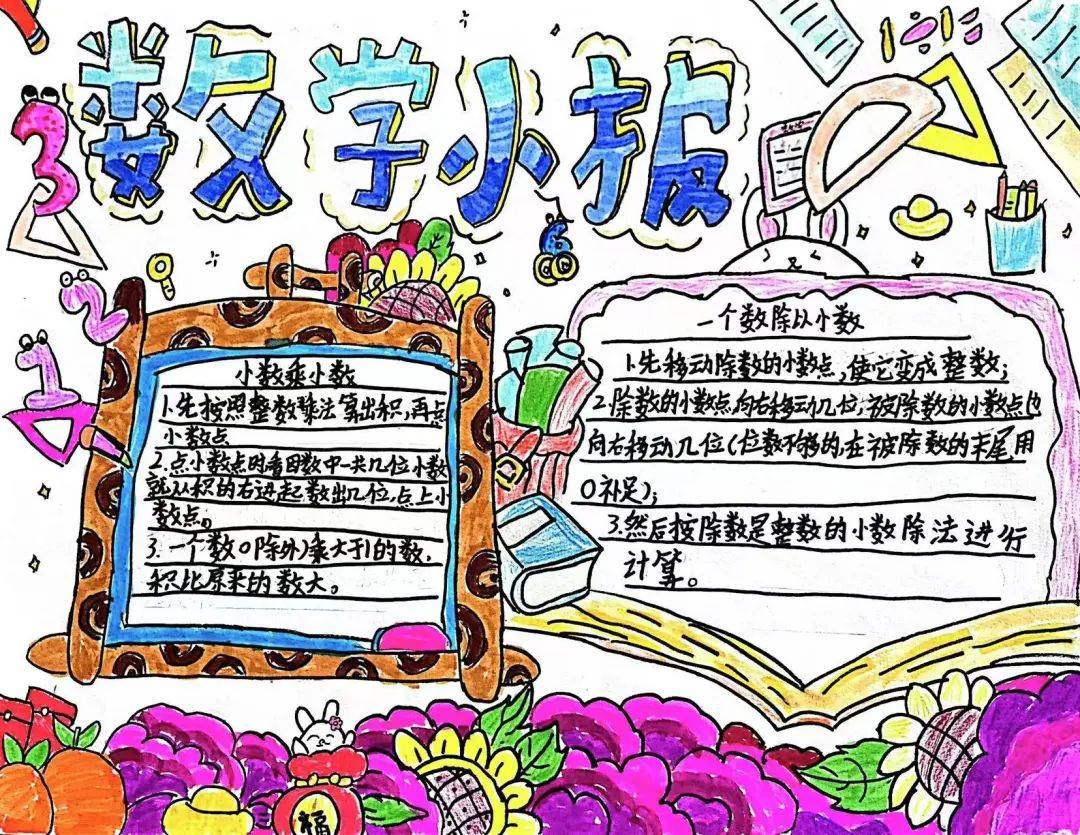 数学小报
小数乘小数
1.先按照整数乘法算出积,再点
小数点
2.点小数点时看因数中一共几位小数
就从积的右边起数出几位,点上小
数点。
3.一个数0除外)乘大于1的数,
积比原来的数大。
一个数除以小数
1.先移动除数的小数点,使它变成整数;
2.除数的小数点向右移动几位,被除数的小数点也
向右移动几位(位数不够的,在被除数的末尾用
0补足);
3.然后按除数是整数的小数除法进行
计算。
福